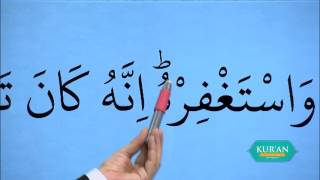 وَاسْتَغْفِرْهُ ؕ اِنَّهُ كَانَ تَ
KUR'AN